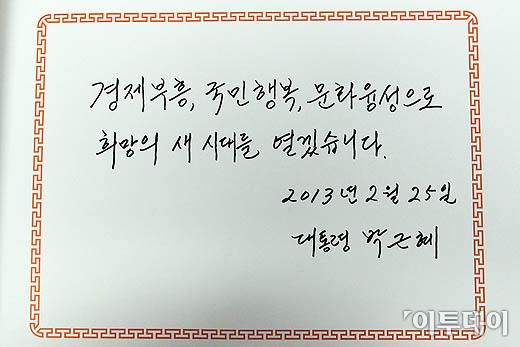 경제부흥, 국민행복, 문화융성으로
희망의 새 시대를 열겠습니다.
2013년 2월 25일
대통령 박근혜
이투데이